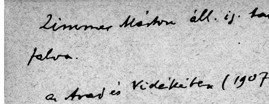 Zimmer Márton áll. ig. ta
falva.
az Arad és Vidékében (1907